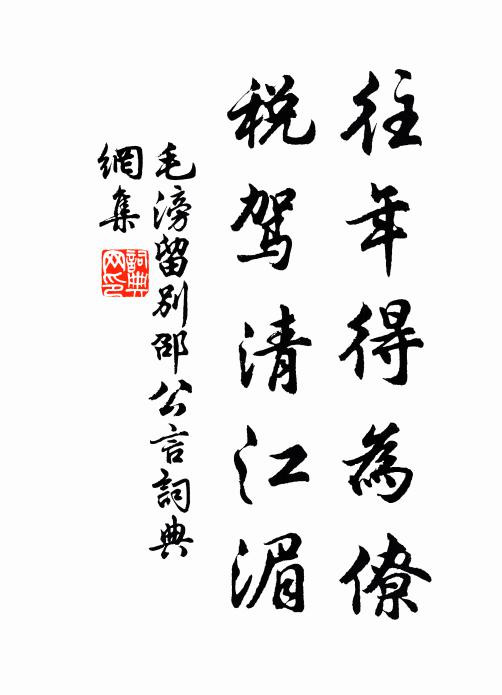 往年得為僚
税驾清江湄
毛滂留别邵公言詞典
網集
詞典
网印